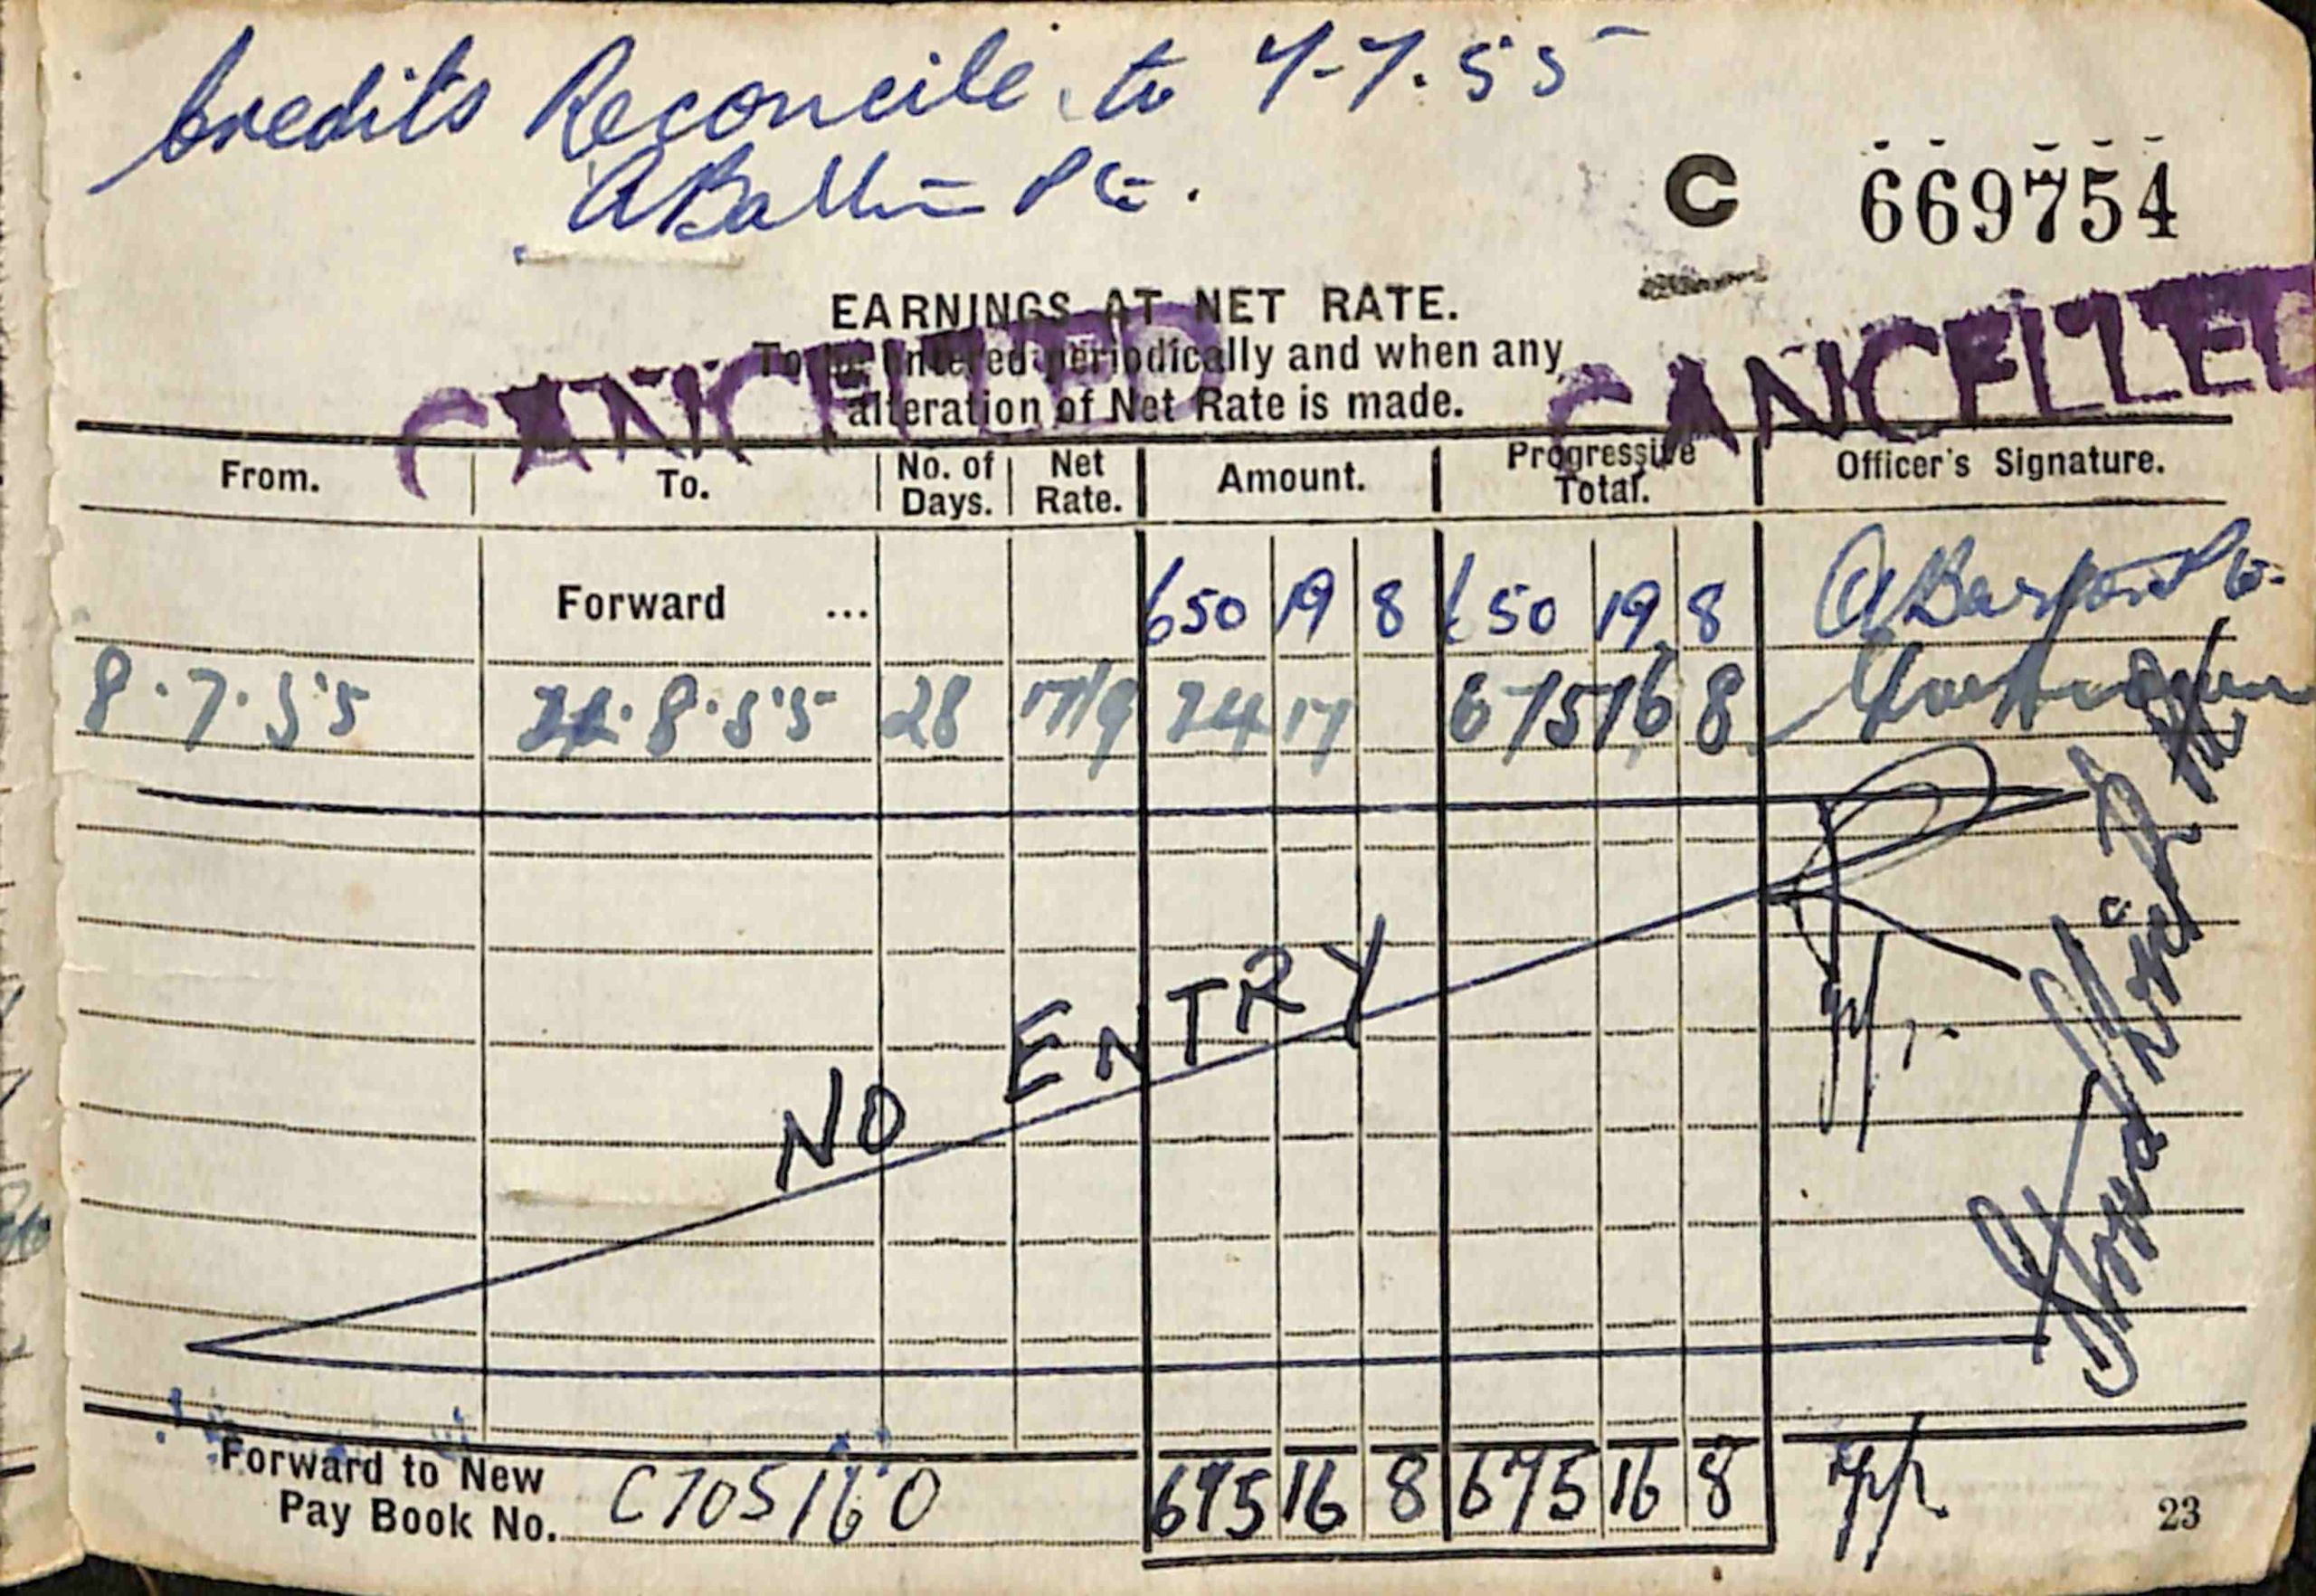 Credits Reconcile to 7-7.55
C 669754
EARNINGS AT NET RATE.
To be entered periodically and when any
alteration of Net Rate is made.
CANCELLED CANCELLED
From. To. No. of Days. Net Rate. Amount. Progressive Total. Officer's Signature.
Forward ... 650 19 8 650 19 8
8.7.55 8.55 28 17/9 24 17 675 16 8
NO ENTRY
Forward to New
Pay Book No. C705160 675 16 8 675 16 8
23